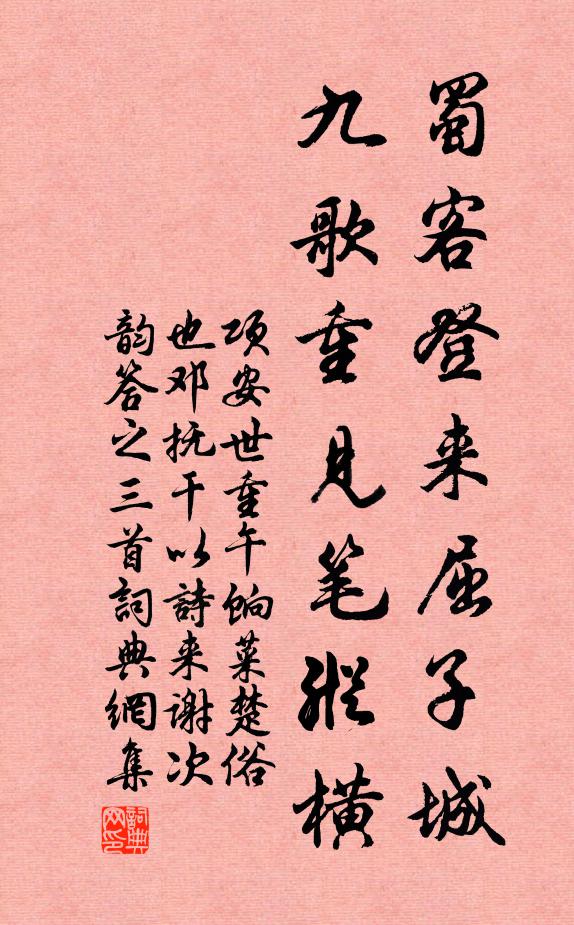 蜀客登来屈子城
九歌重见笔纵横
项安世重午饷菜楚俗
也邓抚干以詩来谢次
韵答之三首詞典網集
詞典網印